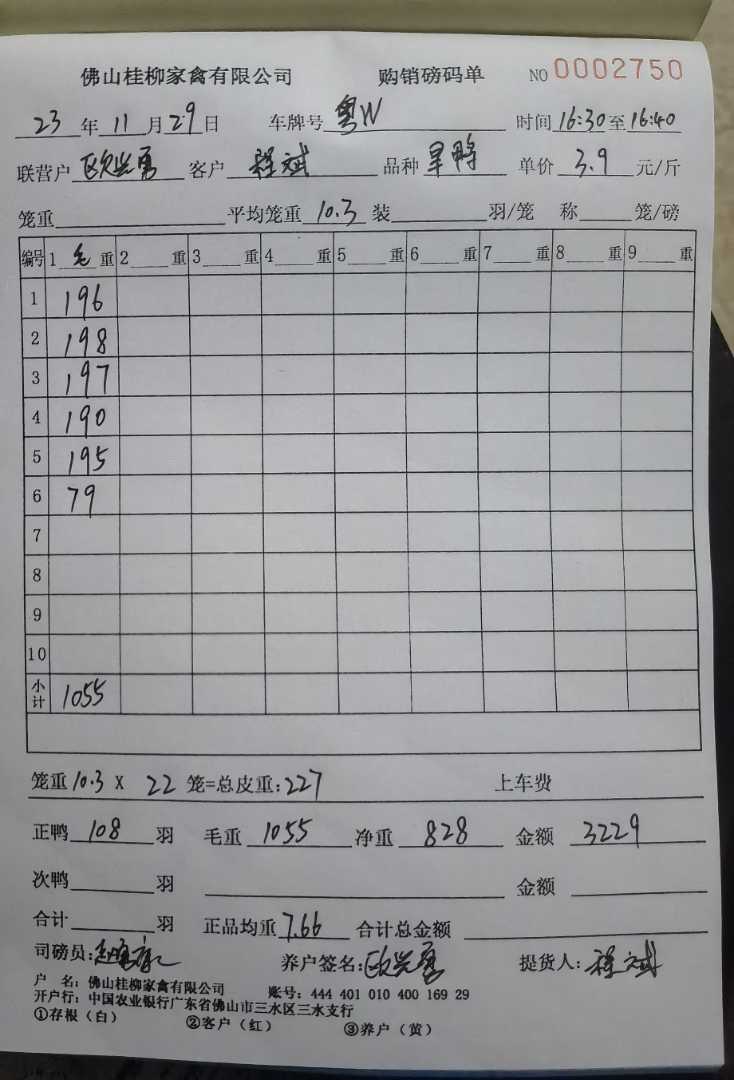 佛山桂柳家禽有限公司 购销磅码单 NO 0002750
23年11月29日 车牌号 粤W 时间 16:30至16:40
联营户 欧兴勇 客户 程斌 品种 旱鸭 单价 3.9 元/斤
笼重 平均笼重 10.3 装 羽/笼 称 笼/磅
编号 1 毛 重 2 重 3 重 4 重 5 重 6 重 7 重 8 重 9 重
1 196
2 198
3 197
4 190
5 195
6 79
7
8
9
10
小计 1055
笼重 10.3 X 22 笼=总皮重:227 上车费
正鸭 108 羽 毛重 1055 净重 828 金额 3229
次鸭 羽 金额
合计 羽 正品均重 7.66 合计总金额
司磅员: 养户签名:欧兴勇 提货人:程斌
户 名:佛山桂柳家禽有限公司 账号:444 401 010 400 169 29
开户行:中国农业银行广东省佛山市三水区三水支行
①存根(白) ②客户(红) ③养户(黄)